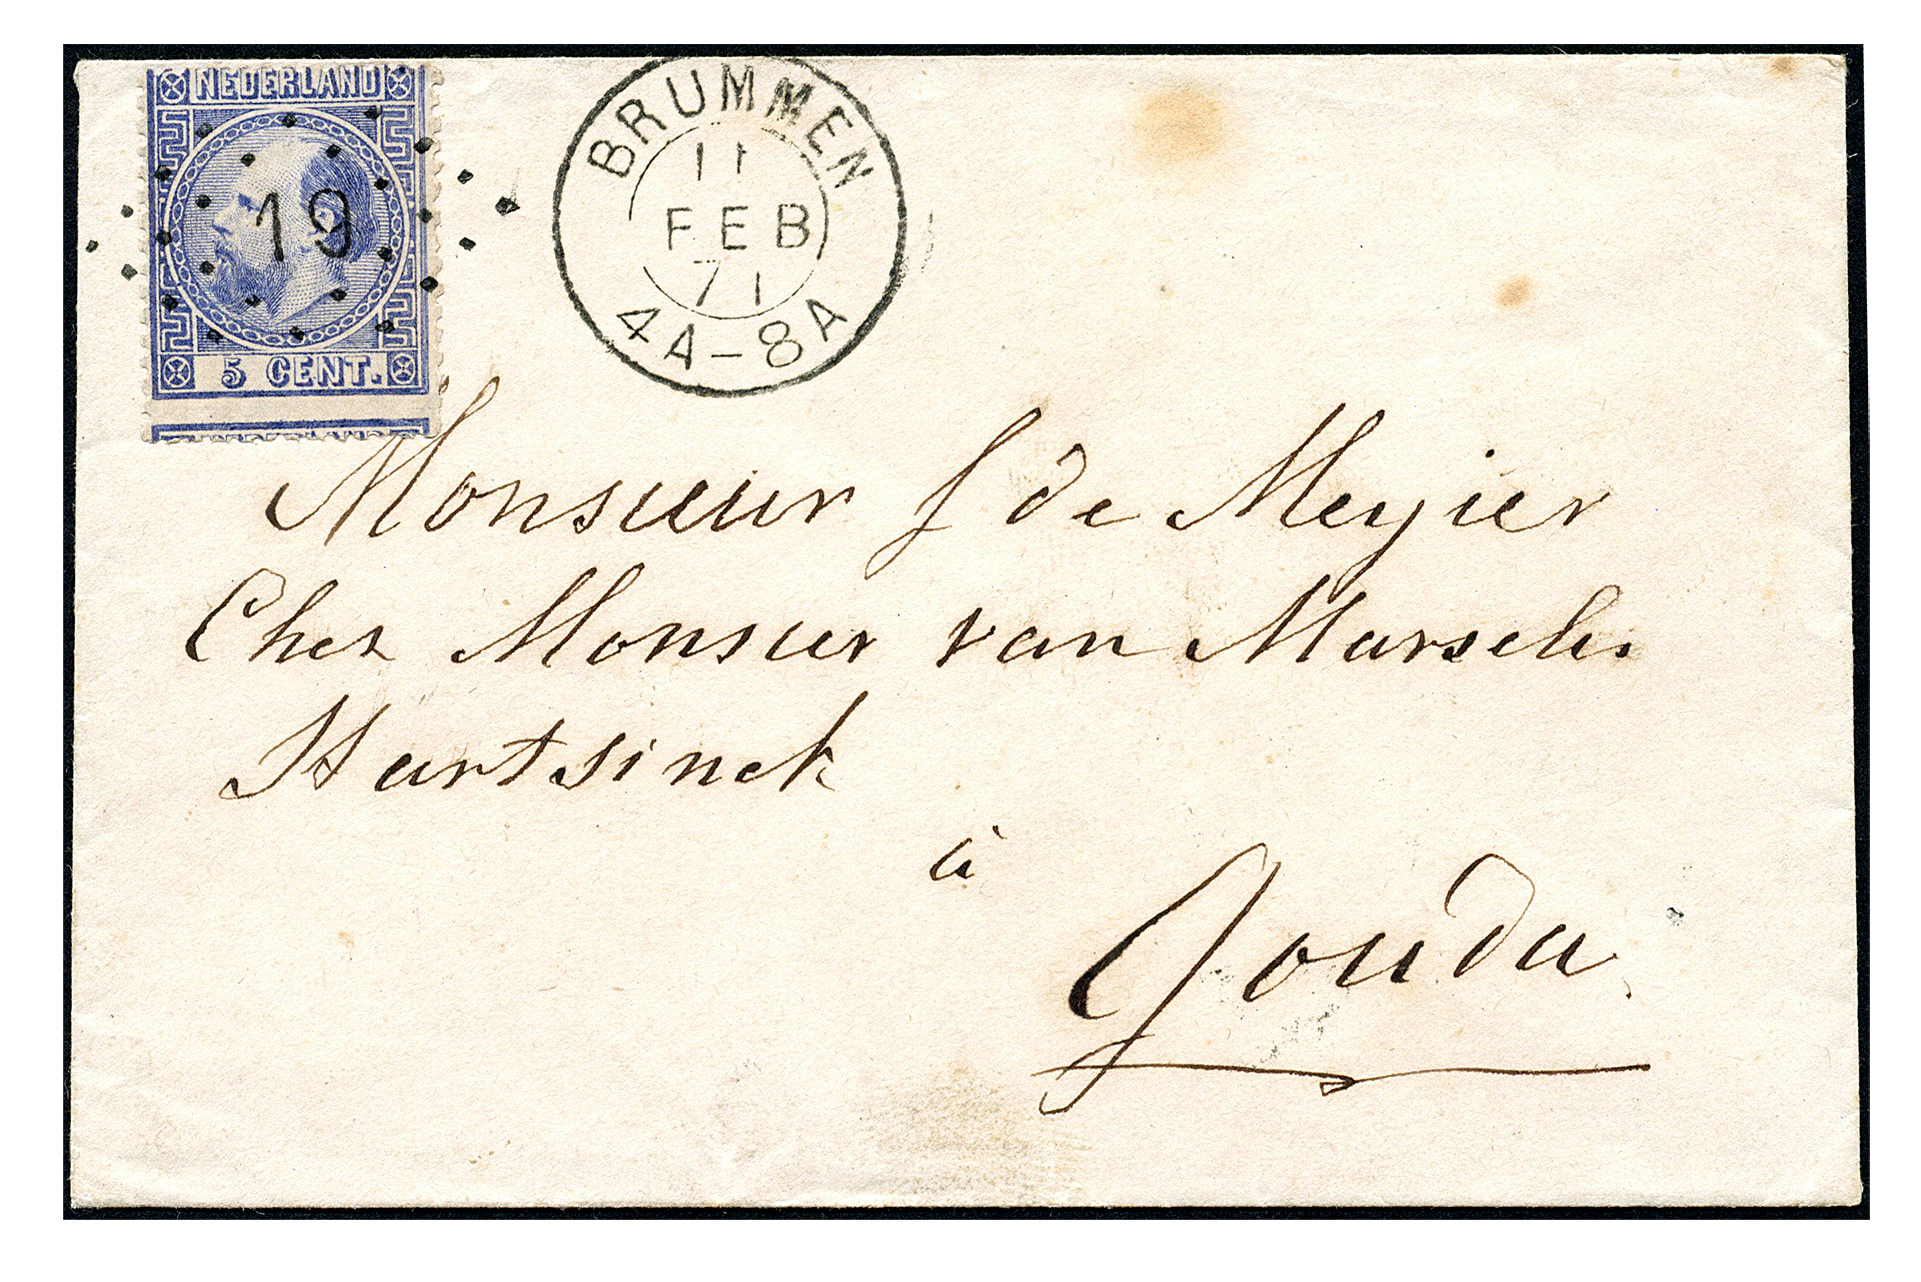 NEDERLAND
19
5 CENT.
BRUMMEN
11
FEB
71
4A-8A
Monsieur J de Meyier
Chez Monsieur van Marselis
Hartsinck
à
Gouda.